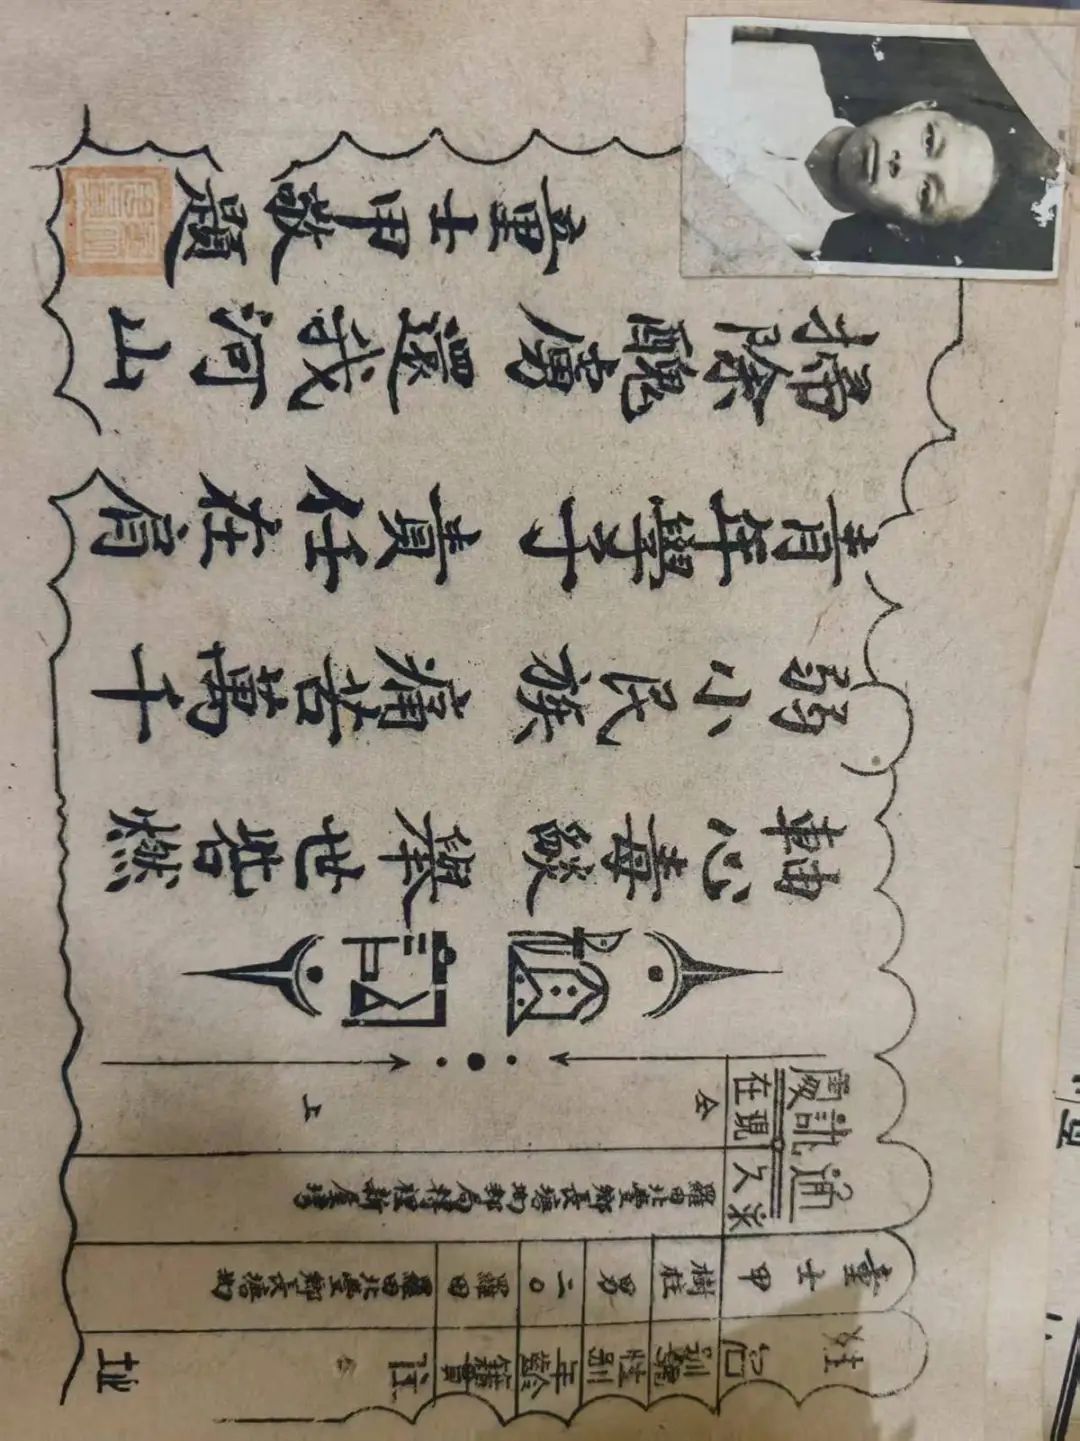 姓名 別號 性別 年齡 籍貫 住址
童士甲 樹柱 男 二〇 羅田 羅田北豐鄉長塘坳
通訊處
永久 羅田北豐鄉長塘坳郵局轉新屋塆
現在 仝上
軸心毒燄 舉世皆燃
弱小民族 痛苦萬千
青年學子 責任在肩
掃除醜虜 還我河山
童士甲敬題